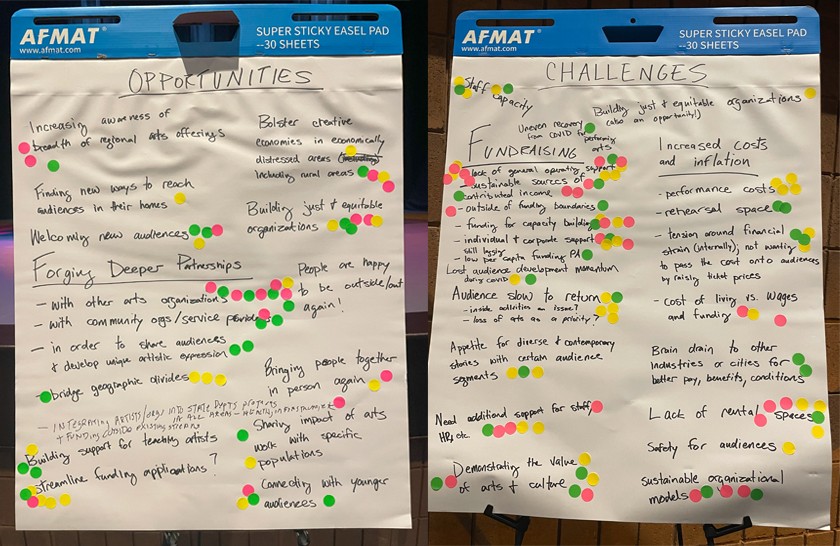 AFMAT®
www.afmat.com
SUPER STICKY EASEL PAD
--30 SHEETS
OPPORTUNITIES
Increasing awareness of
breadth of regional arts offerings
Finding new ways to reach
audiences in their homes
Welcoming new audiences
Bolster creative
economies in economically
distressed areas (including)
Including rural areas
Building just & equitable
organizations
Forging Deeper Partnerships
- with other arts organizations
- with community orgs/service providers
- in order to share audiences
& develop unique artistic expression
- bridge geographic divides
- INTEGRATING ARTISTS/ORGS INTO STATE DEPTS PROJECTS
IN ALL AREAS - HEALTH, INFRASTRUCTURE
+ FUNDING OUTSIDE EXISTING STREAMS
Building support for teaching artists
Streamline funding applications?
People are happy
to be outside/out
again!
Bringing people together
in person again
Sharing impact of arts
work with specific
populations
Connecting with younger
audiences
AFMAT®
www.afmat.com
SUPER STICKY EASEL PAD
--30 SHEETS
CHALLENGES
Staff capacity
Building just & equitable organizations
(also an opportunity!)
Uneven recovery
from COVID for
performing
arts
FUNDRAISING
- lack of general operating support
- sustainable sources of
contributed income
- outside of funding boundaries
- funding for capacity building
- individual & corporate support
still lagging
- low per capita funding PA
Lost audience development momentum
during covid
Audience slow to return
- inside activities an issue?
- loss of arts as a priority?
Appetite for diverse & contemporary
stories with certain audience
segments
Need additional support for staff,
HR, etc.
Demonstrating the value
of arts & culture
Increased costs
and inflation
- performance costs
- rehearsal space
- tension around financial
strain (internally); not wanting
to pass the cost onto audiences
by raising ticket prices
- cost of living vs. wages
and funding
Brain drain to other
industries or cities for
better pay, benefits, conditions
Lack of rental spaces
Safety for audiences
sustainable organizational
models